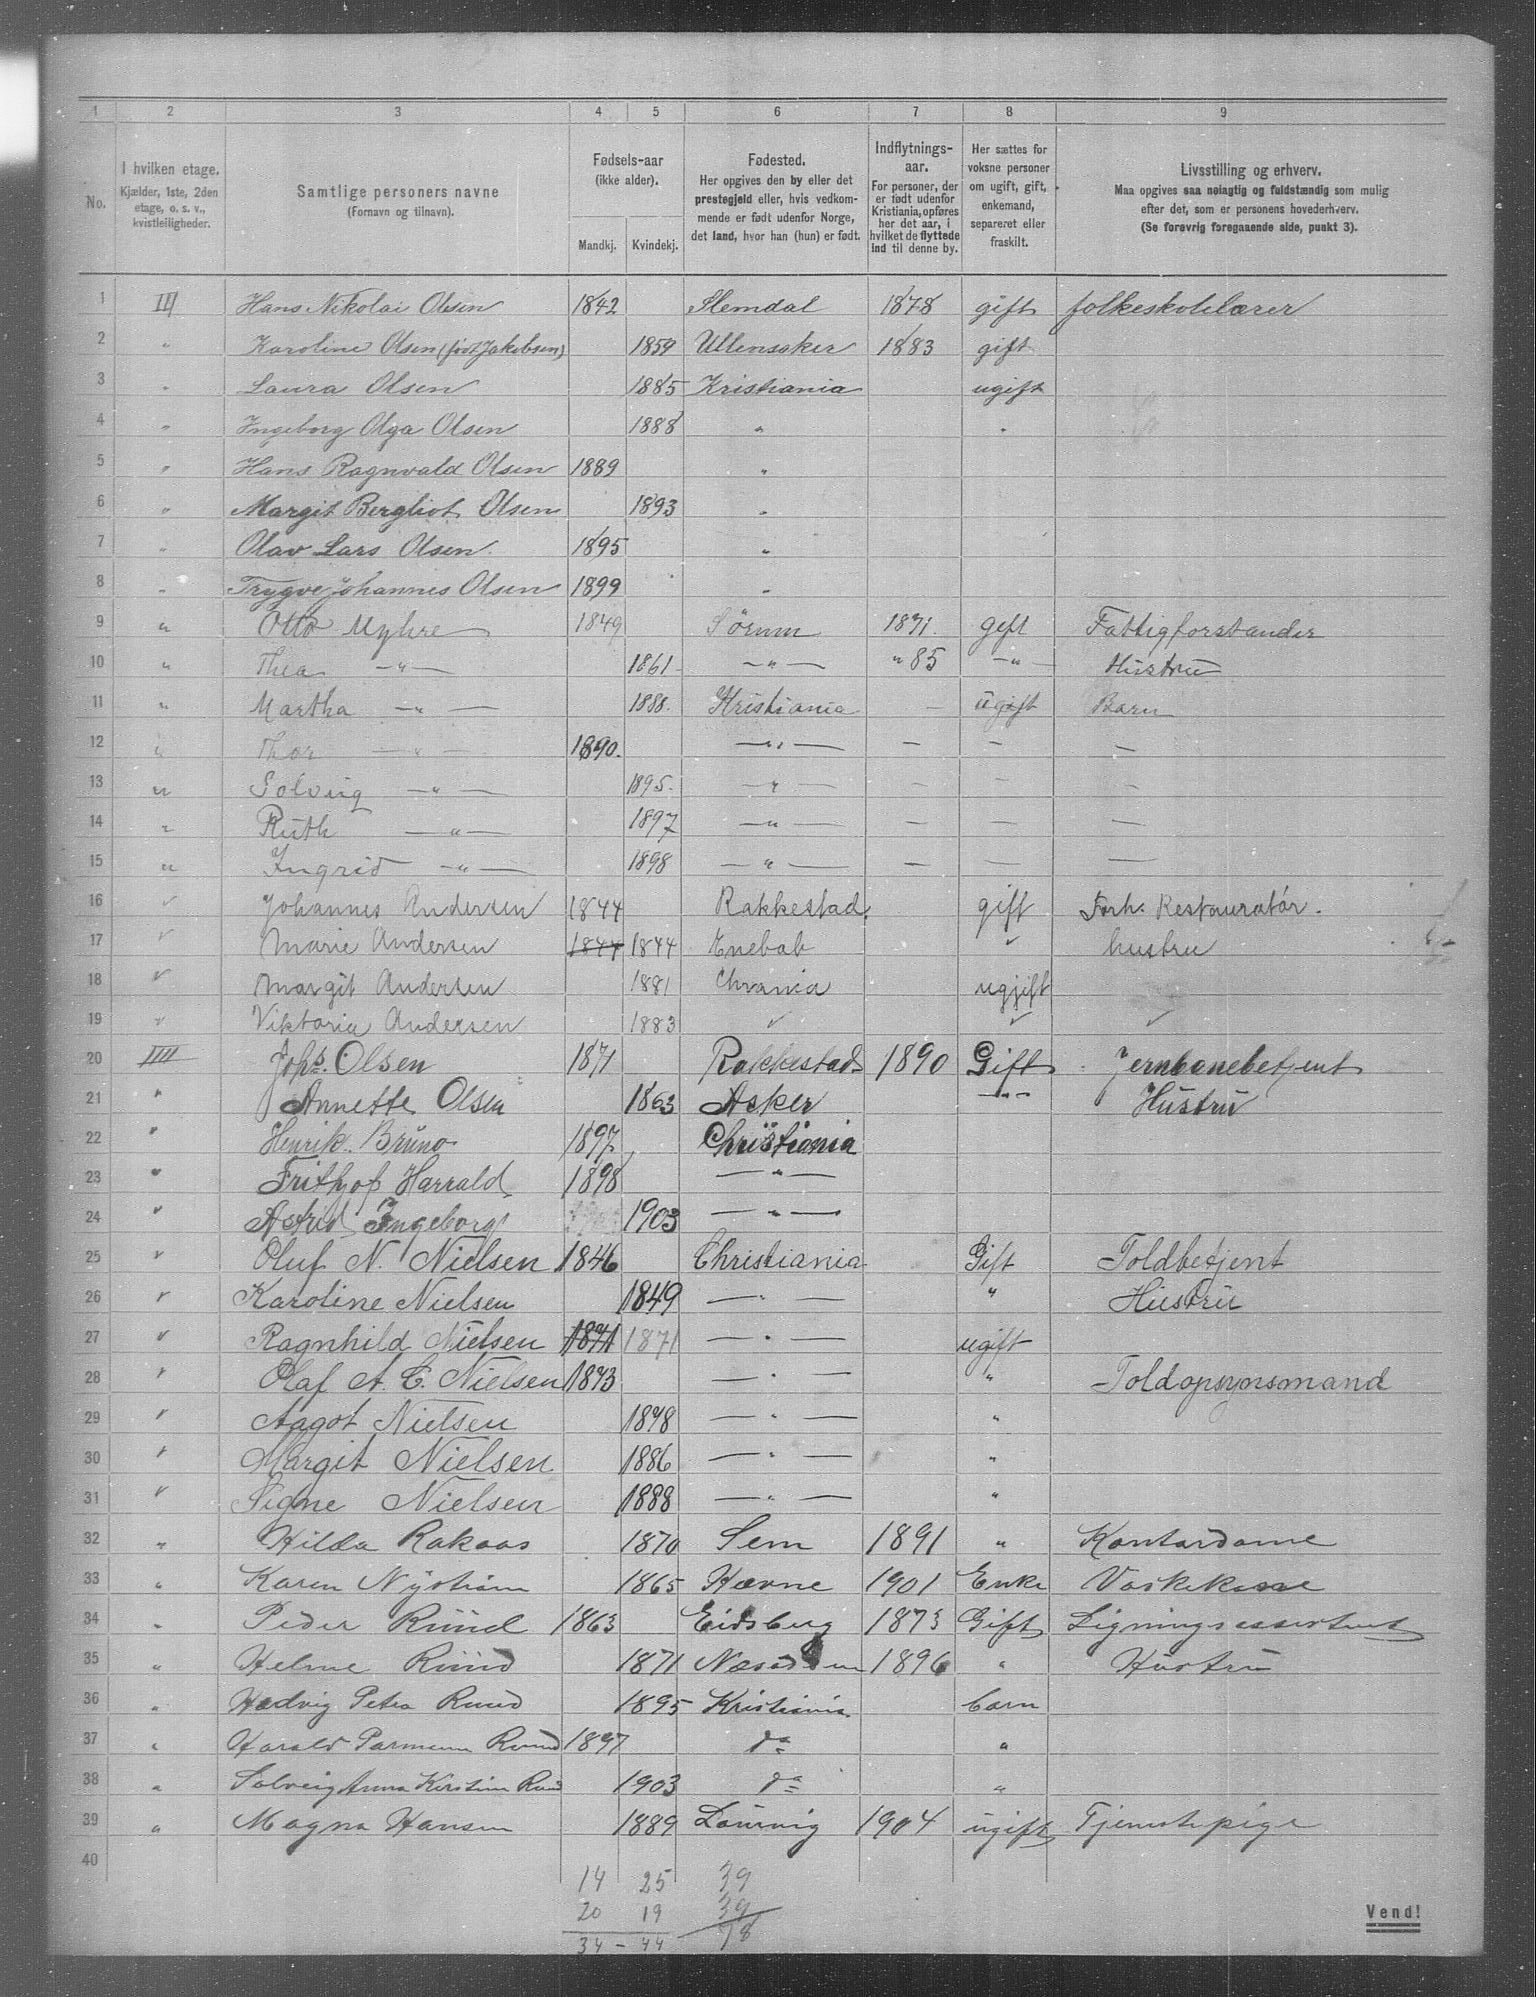 1 2 3 4 5 6 7 8 9
No. | I hvilken etage. Kjælder, 1ste, 2den etage, o. s. v., kvistleiligheder. | Samtlige personers navne (Fornavn og tilnavn). | Fødsels-aar (ikke alder). Mandkj. Kvindekj. | Fødested. Her opgives den by eller det prestegjeld eller, hvis vedkommende er født udenfor Norge, det land, hvor han (hun) er født. | Indflytnings-aar. For personer, der er født udenfor Kristiania, opføres her det aar, i hvilket de flyttede ind til denne by. | Her sættes for voksne personer om ugift, gift, enkemand, separeret eller fraskilt. | Livsstilling og erhverv. Maa opgives saa nøiagtig og fuldstændig som mulig efter det, som er personens hovederhverv. (Se forøvrig foregaaende side, punkt 3).
1 III Hans Nikolai Olsen 1842 Slemdal 1878 gift folkeskolelærer
2 " Karoline Olsen (født Jakobsen) 1859 Ullensaker 1883 gift
3 " Laura Olsen 1885 Kristiania ugift
4 " Ingeborg Olga Olsen 1888 " "
5 " Hans Ragnvald Olsen 1889 "
6 " Margit Bergliot Olsen 1893 "
7 " Olav Lars Olsen 1895 "
8 " Trygve Johannes Olsen 1899 "
9 " Otto Myhre 1849 Sörum 1871. gift Fattigforstander
10 " Thea — " — 1861 — " — " 85 — " — Hustru
11 " Martha — " — 1888. Kristiania — ugift Barn
12 " Thor — " — 1890. — " — — — —
13 " Solveig — " — 1895. — " — — — —
14 " Ruth — " — 1897 — " — — — —
15 " Ingrid — " — 1898 — " — — — —
16 " Johannes Andersen 1844 Rakkestad. gift Forh. Restauratör.
17 " Marie Andersen 1844 1844 Enebak " hustru
18 " Margit Andersen 1881 Chrania ugjift
19 " Viktoria Andersen 1883 " " "
20 IIII Johs. Olsen 1871 Rakkestad 1890 Gift Jernbanebetjent
21 " Annette Olsen 1863 Asker — " — Hustru
22 " Henrik Bruno 1897 Christiania
23 " Frithjof Harrald 1898 — " —
24 " Astrid Ingeborg 1903 — " —
25 " Oluf N. Nielsen 1846 Christiania Gift Toldbetjent
26 " Karoline Nielsen 1849 — " — " Hustru
27 " Ragnhild Nielsen 1871 1871 — " — ugift
28 " Olaf A. C. Nielsen 1873 — " — " Toldopsynsmand
29 " Aagot Nielsen 1878 — " — "
30 " Margit Nielsen 1886 — " — "
31 " Signe Nielsen 1888 — " — "
32 " Hilda Rakaas 1870 Sem 1891 " Kontordame
33 " Karen Nyström 1865 Hevne 1901 Enke Vaskekone
34 " Peder Ruud 1863 Eidsberg 1873 Gift Ligningsassistent
35 " Helme Ruud 1871 1896 " Hustru
36 " Hedvig Petra Ruud 1895 Kristiania barn
37 " Harald Ruud 1897 do "
38 " Solveig Anna Kirstine Ruud 1903 do "
39 " Magna Hansen 1889 Laurvig 1904 ugift Tjenestepige
40
14 25 39
20 19 39
34 - 44 78
Vend!